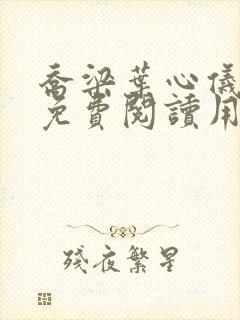 喬梁葉心儀
免費閱讀用
殘夜繁星